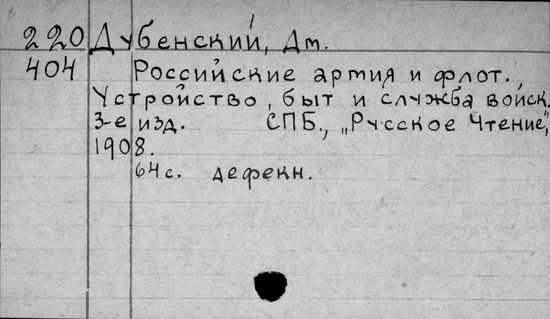 220 Дубенский, Дм.
404 Российские армия и флот.
Устройство, быт и служба войск.
3-е изд. СПБ., „Русское Чтение",
1908.
64 с. дефекн.